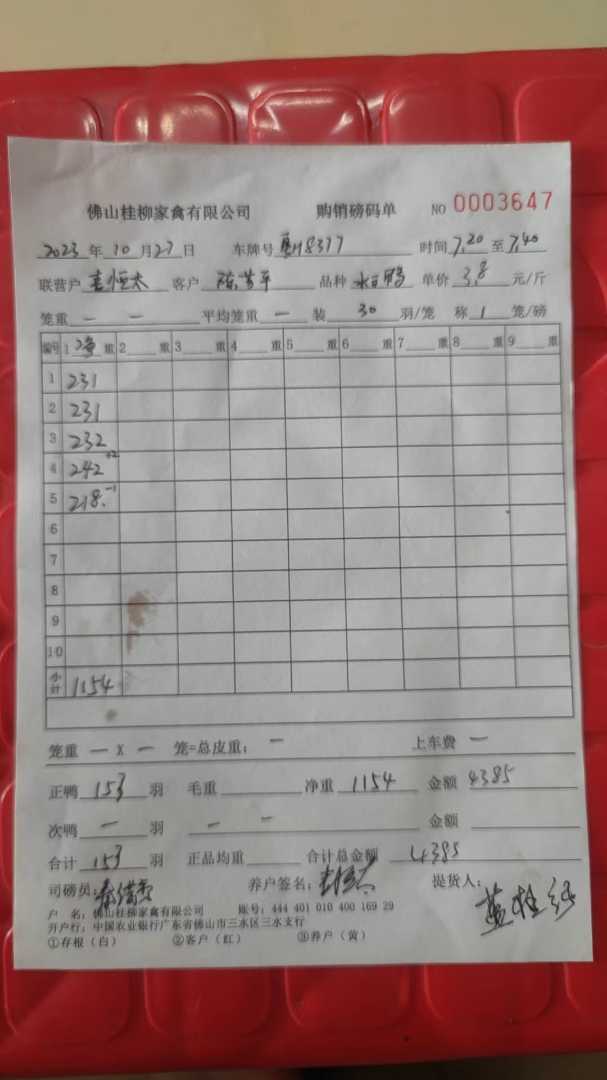 佛山桂柳家禽有限公司 购销磅码单 NO 0003647
2023 年 10 月 27 日 车牌号 8377 时间 7.20 至 7.40
联营户 恒太 客户 陈 平 品种 水白鸭 单价 3.8 元/斤
笼重 — — 平均笼重 — 装 30 羽/笼 称 1 笼/磅
编号 1 净 重 2 重 3 重 4 重 5 重 6 重 7 重 8 重 9 重
1 231
2 231
3 232
4 242 +2
5 218. -1
6
7
8
9
10
小计 1154
笼重 — X — 笼=总皮重： — 上车费 —
正鸭 153 羽 毛重 净重 1154 金额 4385
次鸭 — 羽 — — 金额
合计 153 羽 正品均重 合计总金额 4385
司磅员： 养户签名： 提货人：
户 名：佛山桂柳家禽有限公司 账号：444 401 010 400 169 29
开户行：中国农业银行广东省佛山市三水区三水支行
①存根（白） ②客户（红） ③养户（黄）